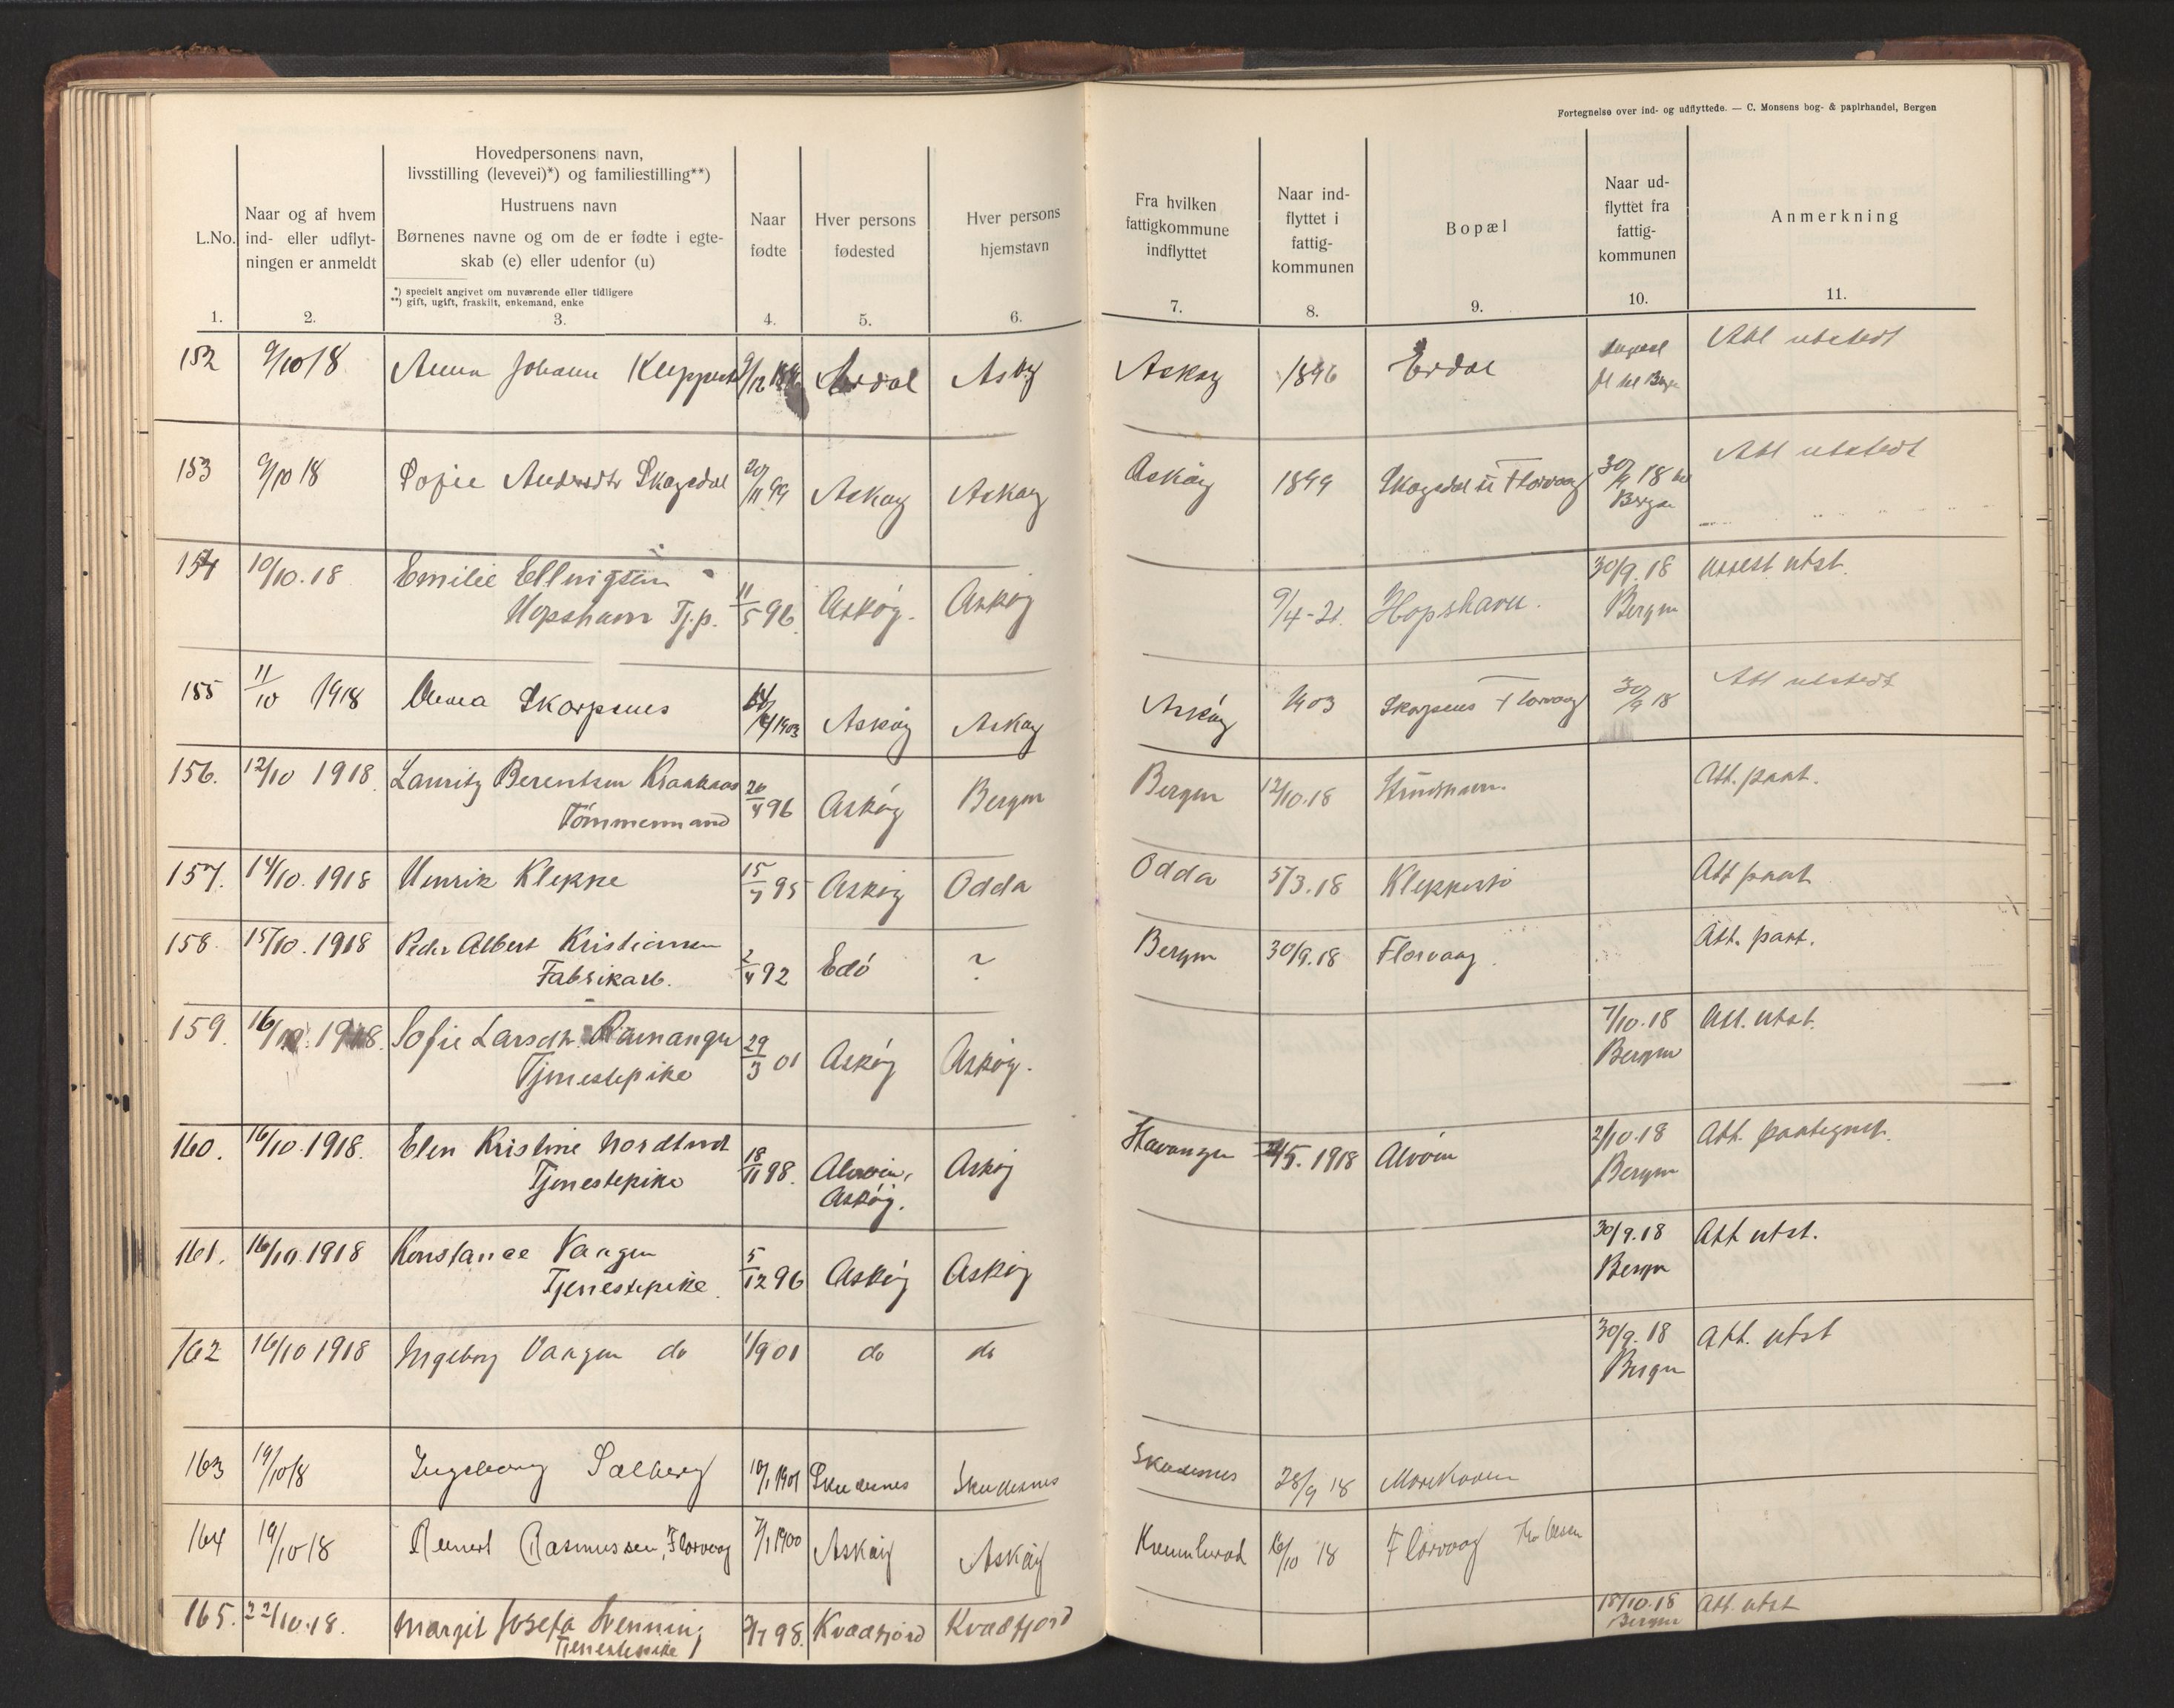 Fortegnelse over ind- og udflyttede. — C. Monsens bog- & papirhandel, Bergen
L.No.
Naar og af hvem
ind- eller udflyt-
ningen er anmeldt
Hovedpersonens navn,
livsstilling (levevei)*) og familiestilling**)
Hustruens navn
Børnenes navne og om de er fødte i egte-
skab (e) eller udenfor (u)
*) specielt angivet om nuværende eller tidligere
**) gift, ugift, fraskilt, enkemand, enke
Naar
fødte
Hver persons
fødested
Hver persons
hjemstavn
Fra hvilken
fattigkommune
indflyttet
Naar ind-
flyttet i
fattig-
kommunen
Bopæl
Naar ud-
flyttet fra
fattig-
kommunen
Anmerkning
1. 2. 3. 4. 5. 6. 7. 8. 9. 10. 11.
152 9/10 18 Anna Johanne 9/12 Erdal Askøy Askøy 1896 Erdal Att utstedt
153 9/10 18 Sofie Andersdtr Skogsdal 20/11 99 Askøy Askøy Askøy 1899 Skogsdal Florvaag 30/9 18
Bergen Att utstedt
154 10/10.18 Emilie Ellingsen
Hopshavn Tj.p. 11/5 96. Askøy. Askøy 9/4-21. Hopshavn. 30/9.18
Bergen Attest utst.
155 11/10 1918 Anna Skarpenes 1903 Askøy Askøy Askøy 1903 Skarpenes Florvaag 30/9 18 Att utstedt
156. 12/10 1918. Lauritz Berentsen Kraakaas
Tømmermand 26/4 96 Askøy Bergen Bergen 12/10.18 Att. paat.
157. 14/10.1918 Henrik Kleppe 15/7 95 Askøy Odda Odda 5/3.18 Kleppestø Att paat
158. 15/10.1918 Peder Albert Kristiansen
Fabrikarb. 2/4 92 Edö ? Bergen 30/9.18 Florvaag. Att. paat.
159. 16/10.1918. Sofie Larsdtr. Ramanger
Tjenestepike 29/3 01 Askøy Askøy. 7/10.18
Bergen Att. utst.
160. 16/10.1918. Elen Kristine Nordtvedt
Tjenestepike 18/11 98. Alvøen,
Askøy. Askøy Stavanger /5.1918 Alvöen 2/10.18
Bergen Att. paategnet.
161. 16/10.1918 Konstance Vaagen
Tjenestepike. 5/12 96 Askøy Askøy 30/9.18
Bergen Att utst.
162 16/10 1918 Ingeborg Vaagen do 1/9 01 do do 30/9.18
Bergen Att. utst
163 19/10 18 Ingeborg Solberg 10/1 1901 Skudesnes Skudesnes Skudesnes 28/9 18
164 19/10 18 Rasmussen, Florvaag 7/1 1900 Askøy Askøy 16/10 18 Florvaag
165. 22/10.18. Margit Josefa Svenning
Tjenestepike 98. Kvædfjord Kvædfjord 18/10.18
Bergen Att. utst